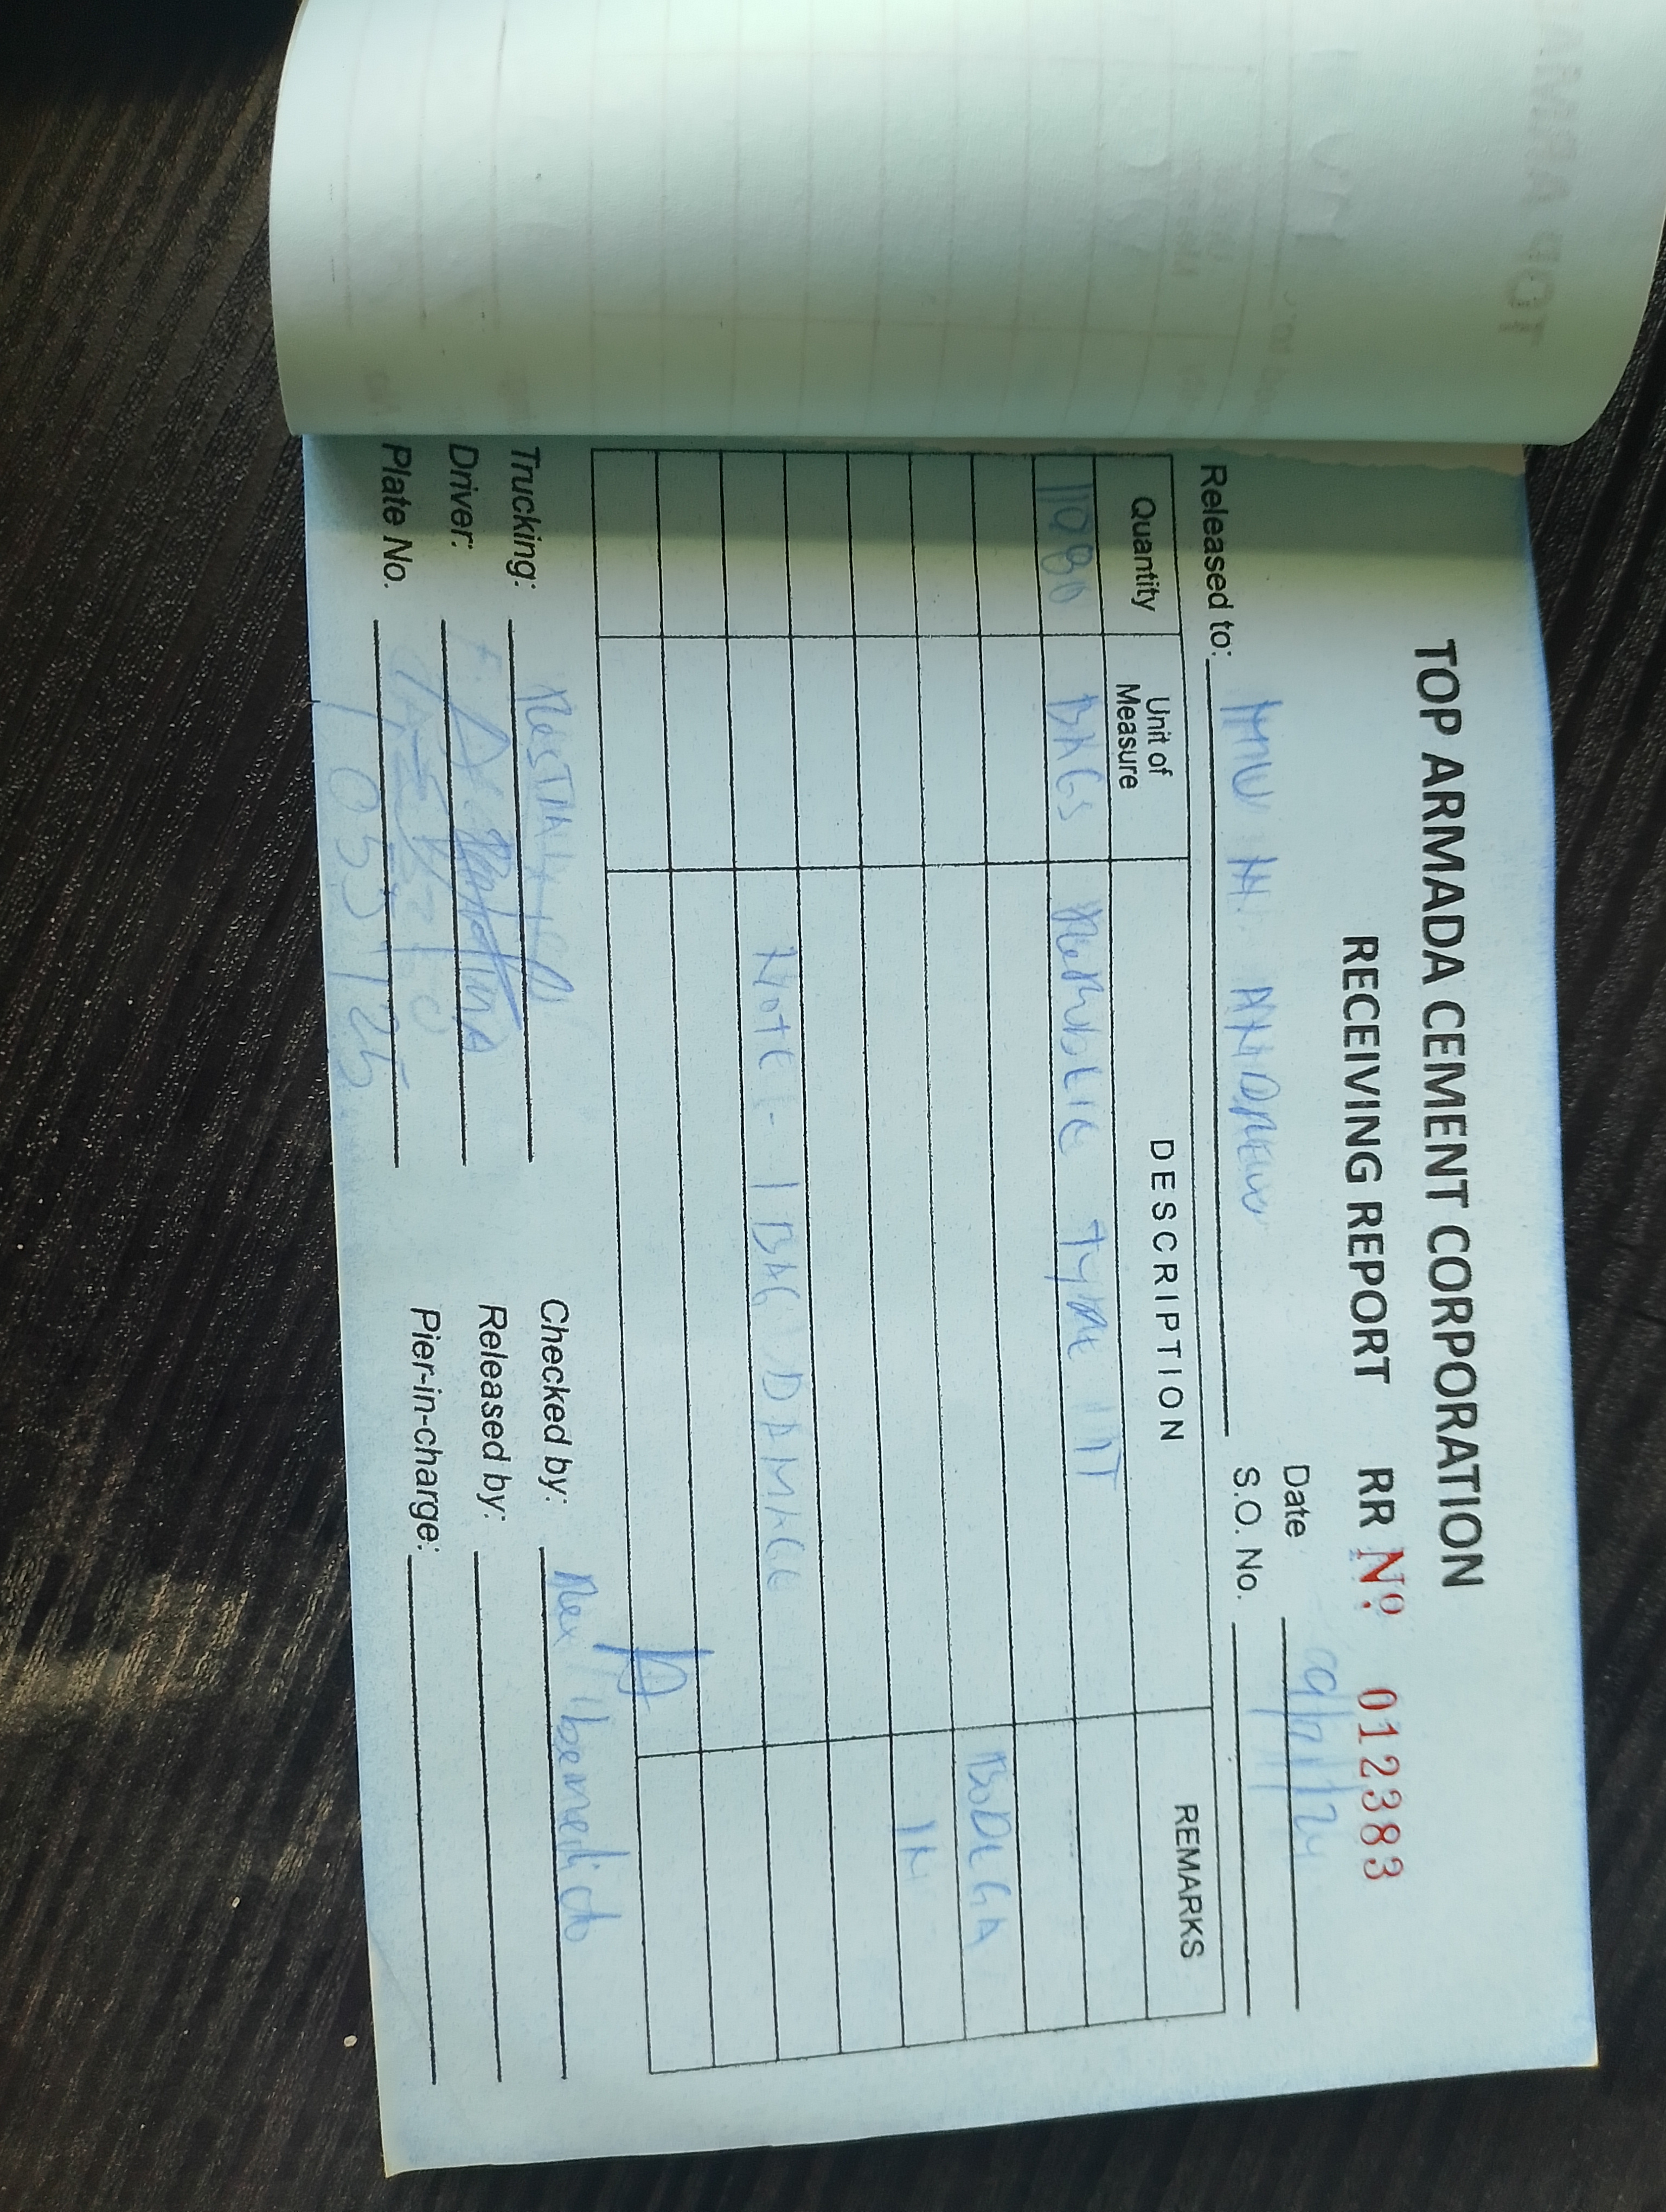 TOP ARMADA CEMENT CORPORATION
RECEIVING REPORT RR Nº. 012383
Date 9/21/24
Released to: M/V M. ANDREW S.O. No.
Quantity Unit of Measure DESCRIPTION REMARKS
BAGS Republic type 1T
BODEGA
IN
Note - 1 BAG DAMAGE
Trucking:
Driver:
Plate No.
Checked by: Rex benedicto
Released by:
Pier-in-charge: